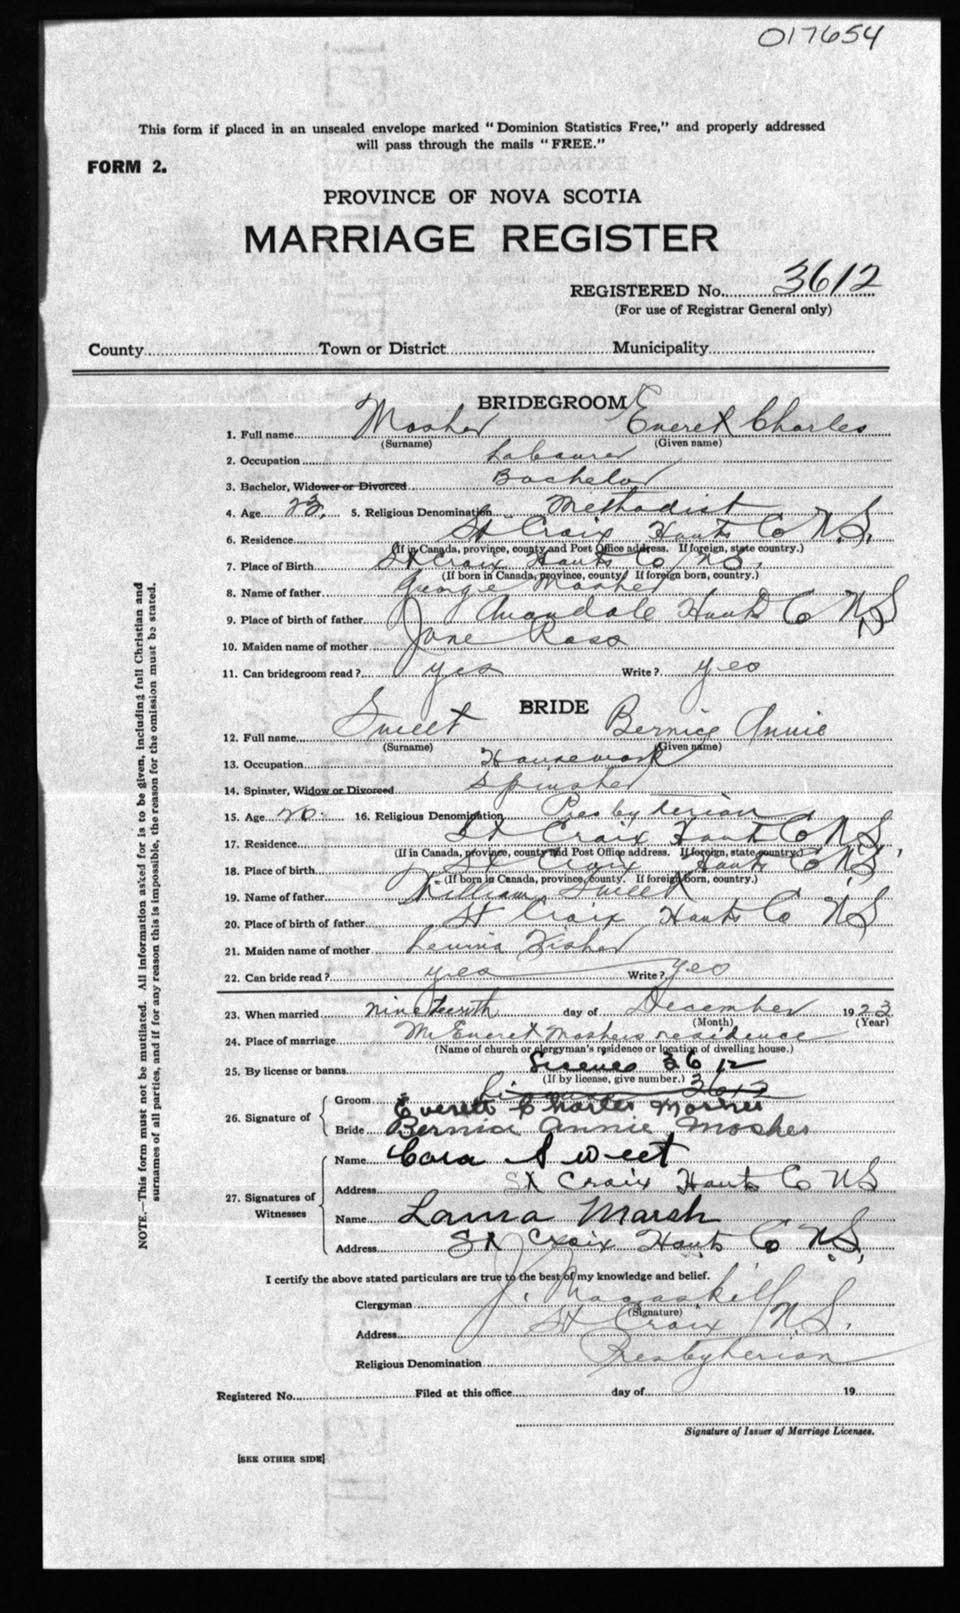 017654
This form if placed in an unsealed envelope marked "Dominion Statistics Free," and properly addressed
will pass through the mails "FREE."
FORM 2.
PROVINCE OF NOVA SCOTIA
MARRIAGE REGISTER
REGISTERED No. 3612
(For use of Registrar General only)
County Town or District Municipality
BRIDEGROOM
1. Full name Mosher Everet Charles
(Surname) (Given name)
2. Occupation Labourer
3. Bachelor, Widower or Divorced Bachelor
4. Age 23. 5. Religious Denomination Methodist
6. Residence St Croix Hants Co N.S.
(If in Canada, province, county and Post Office address. If foreign, state country.)
7. Place of Birth St Croix Hants Co N.S.
(If born in Canada, province, county. If foreign born, country.)
8. Name of father George Mosher
9. Place of birth of father Avondale Hants Co N.S
10. Maiden name of mother Jane Ross
11. Can bridegroom read? yes Write? yes
BRIDE
12. Full name Sweet Bernice Annie
(Surname) (Given name)
13. Occupation Housework
14. Spinster, Widow or Divorced Spinster
15. Age 20. 16. Religious Denomination Presbyterian
17. Residence St Croix Hants Co N.S.
(If in Canada, province, county and Post Office address. If foreign, state country.)
18. Place of birth St Croix Hants Co N.S.
(If born in Canada, province, county. If foreign born, country.)
19. Name of father William Sweet
20. Place of birth of father St Croix Hants Co N.S
21. Maiden name of mother Fisher
22. Can bride read? yes Write? yes
23. When married nineteenth day of December 1923
(Month) (Year)
24. Place of marriage Mr Everet Moshers residence
(Name of church or clergyman's residence or location of dwelling house.)
25. By license or banns. 3612
(If by license, give number.) 3612
26. Signature of
Groom Everett Charles Mosher
Bride Bernice Annie Mosher
27. Signatures of Witnesses
Name Cora Sweet
Address St Croix Hants Co N S
Name Laura Marsh
Address St Croix Hants Co N.S.
I certify the above stated particulars are true to the best of my knowledge and belief.
Clergyman J. Macaskill
(Signature)
Address St Croix N.S.
Religious Denomination Presbyterian
Registered No. Filed at this office day of 19
Signature of Issuer of Marriage Licenses.
[SEE OTHER SIDE]
NOTE.—This form must not be mutilated. All information asked for is to be given, including full Christian and
surnames of all parties, and if for any reason this is impossible, the reason for the omission must be stated.